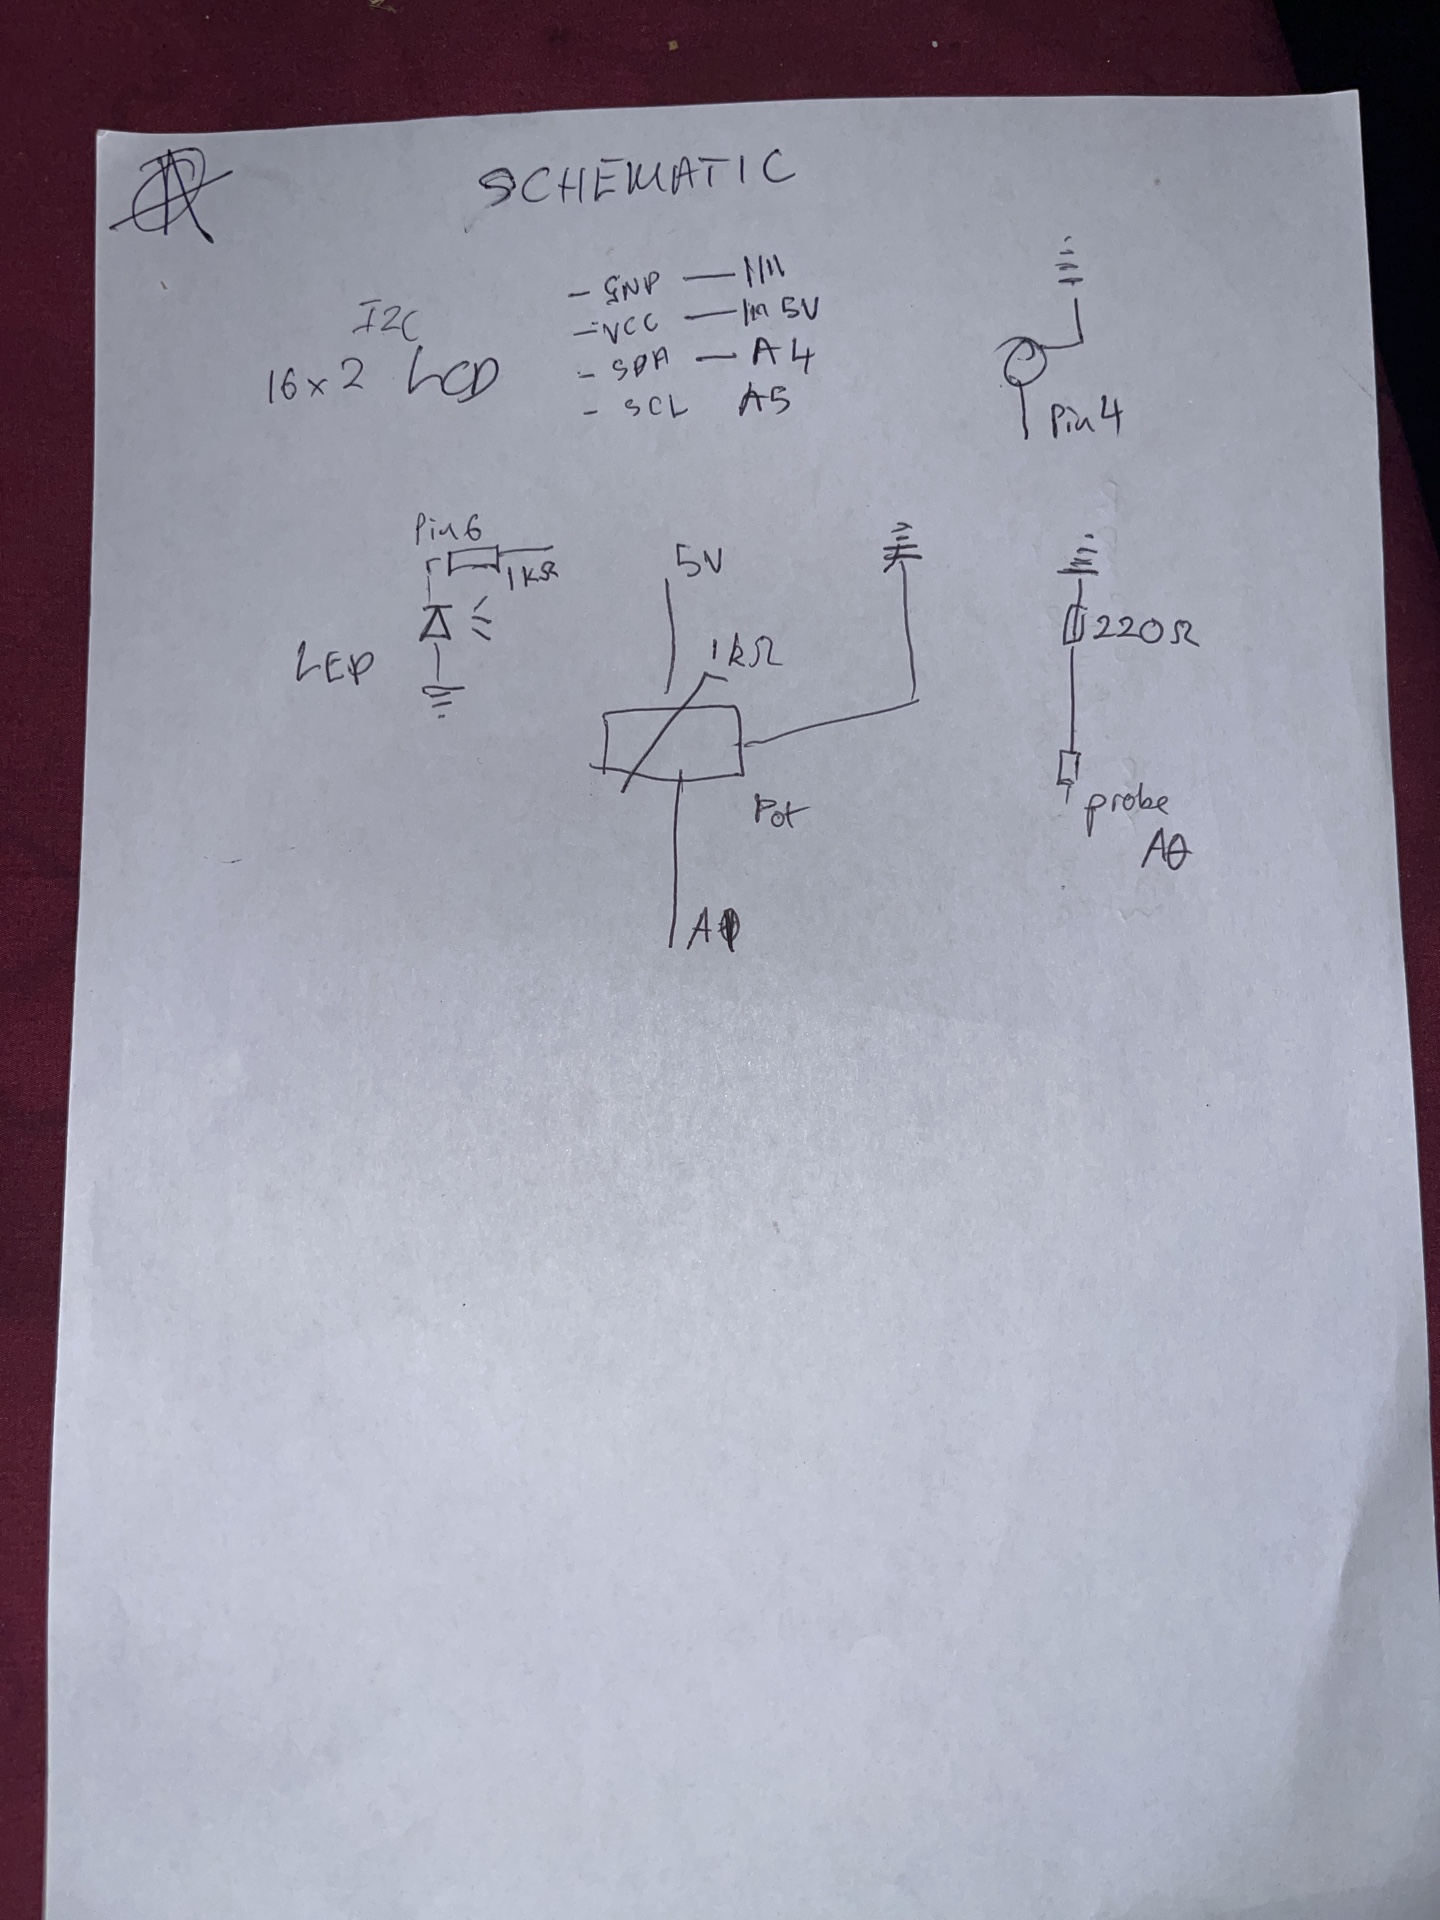 SCHEMATIC
I2C
16x2 LCD
- GND —
- VCC — 5V
- SDA — A4
- SCL A5
Pin 4
Pin 6
1kΩ
LED
5V
1kΩ
Pot
220Ω
probe
A0